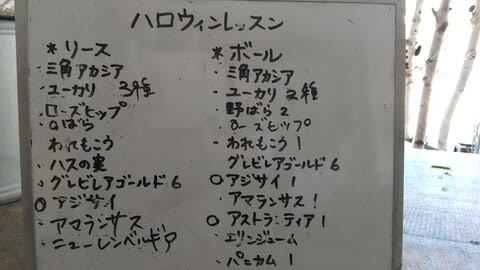 ハロウィンレッスン
*リース
・三角アカシア
・ユーカリ 3種
・ローズヒップ
・のばら
われもこう
・ハスの実
・グレビレアゴールド6
○アジサイ
・アマランサス
・ニューレンベルギア
*ボール
・三角アカシア
・ユーカリ 3種
・野ばら2
・ローズヒップ
・われもこう1
グレビレアゴールド6
○アジサイ1
・アマランサス1
○アストランティア1
・エリンジューム
・パニカム1